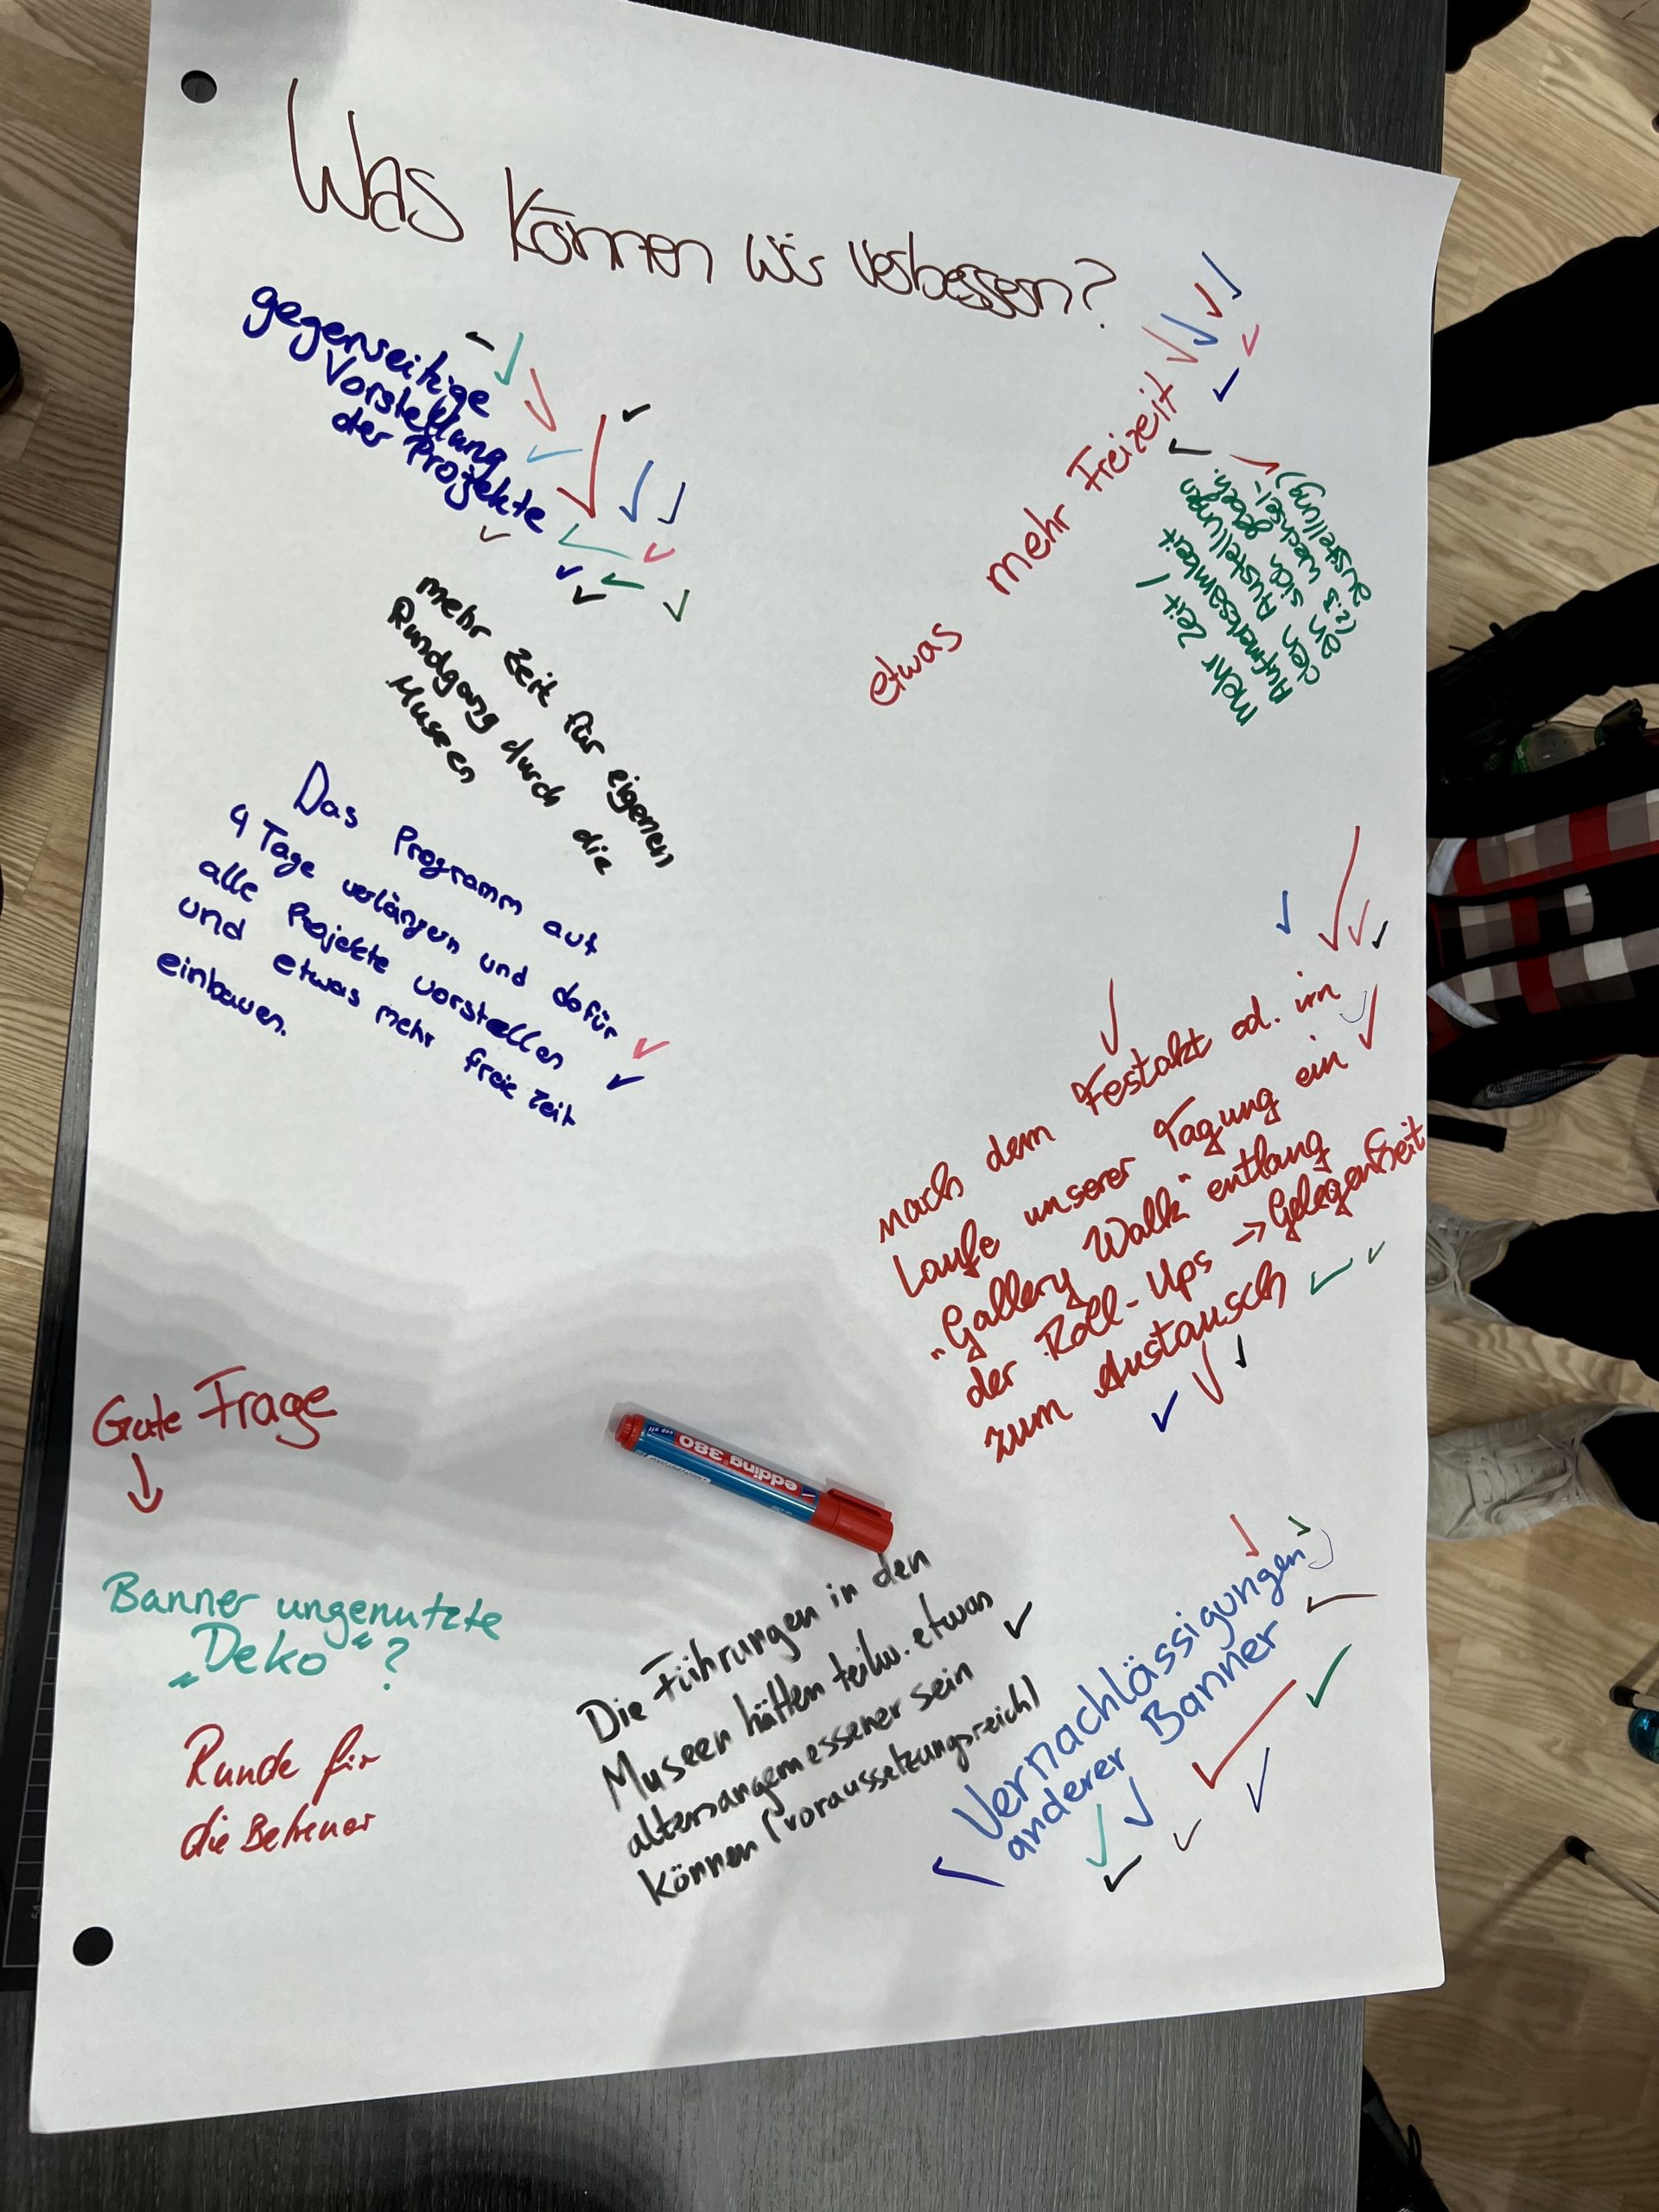 Was können wir verbessern?
gegenseitige
Vorstellung
der Projekte
etwas mehr Freizeit
mehr Zeit /
Aufmerksamkeit
den Austellungen
sich geben.
(z.B. Wechsel-
ausstellung)
mehr Zeit für eigenen
Rundgang durch die
Museen
Das Programm auf
4 Tage verlängern und dafür
alle Projekte vorstellen
und etwas mehr freie Zeit
einbauen.
nach dem Festakt od. im
Laufe unserer Tagung ein
„Gallery Walk" entlang
der Roll-Ups -> Gelegenheit
zum Austausch
Gute Frage
Banner ungenutzte
„Deko"?
Runde für
die Betreuer
edding 380
cap off
Die Führungen in den
Museen hätten teilw. etwas
altersangemessener sein
können (voraussetzungsreich)
Vernachlässigungen
anderer Banner